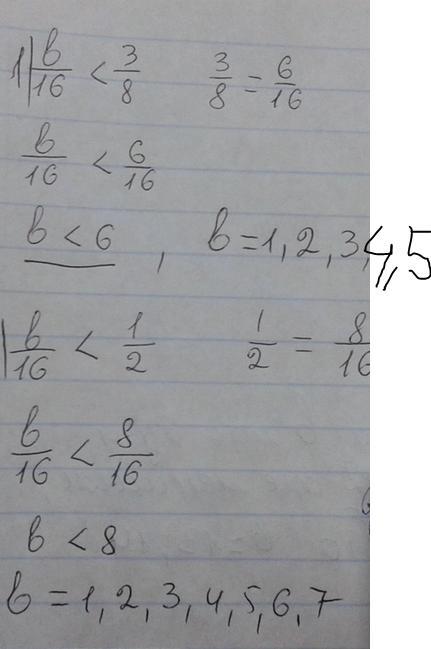 1) b/16 < 3/8   3/8 = 6/16
b/16 < 6/16
b < 6 , b = 1, 2, 3, 4, 5
b/16 < 1/2   1/2 = 8/16
b/16 < 8/16
b < 8
b = 1, 2, 3, 4, 5, 6, 7